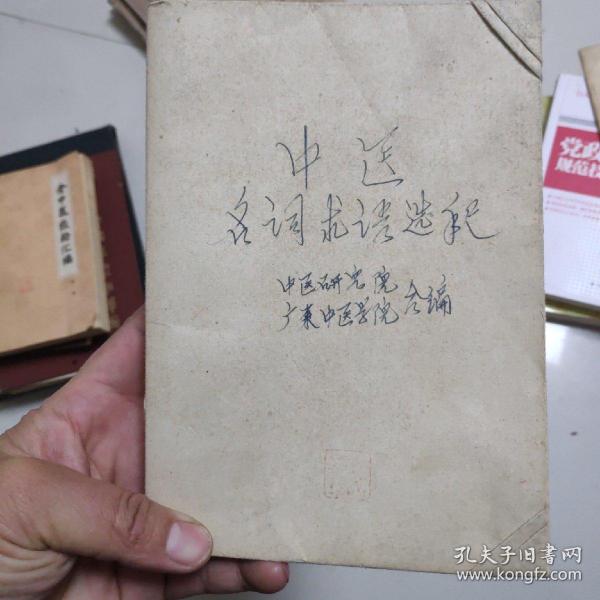 中医
名词术语选释
中医研究院
广东中医学院 合编
党政
规范技
孔夫子旧书网
www.kongfz.com